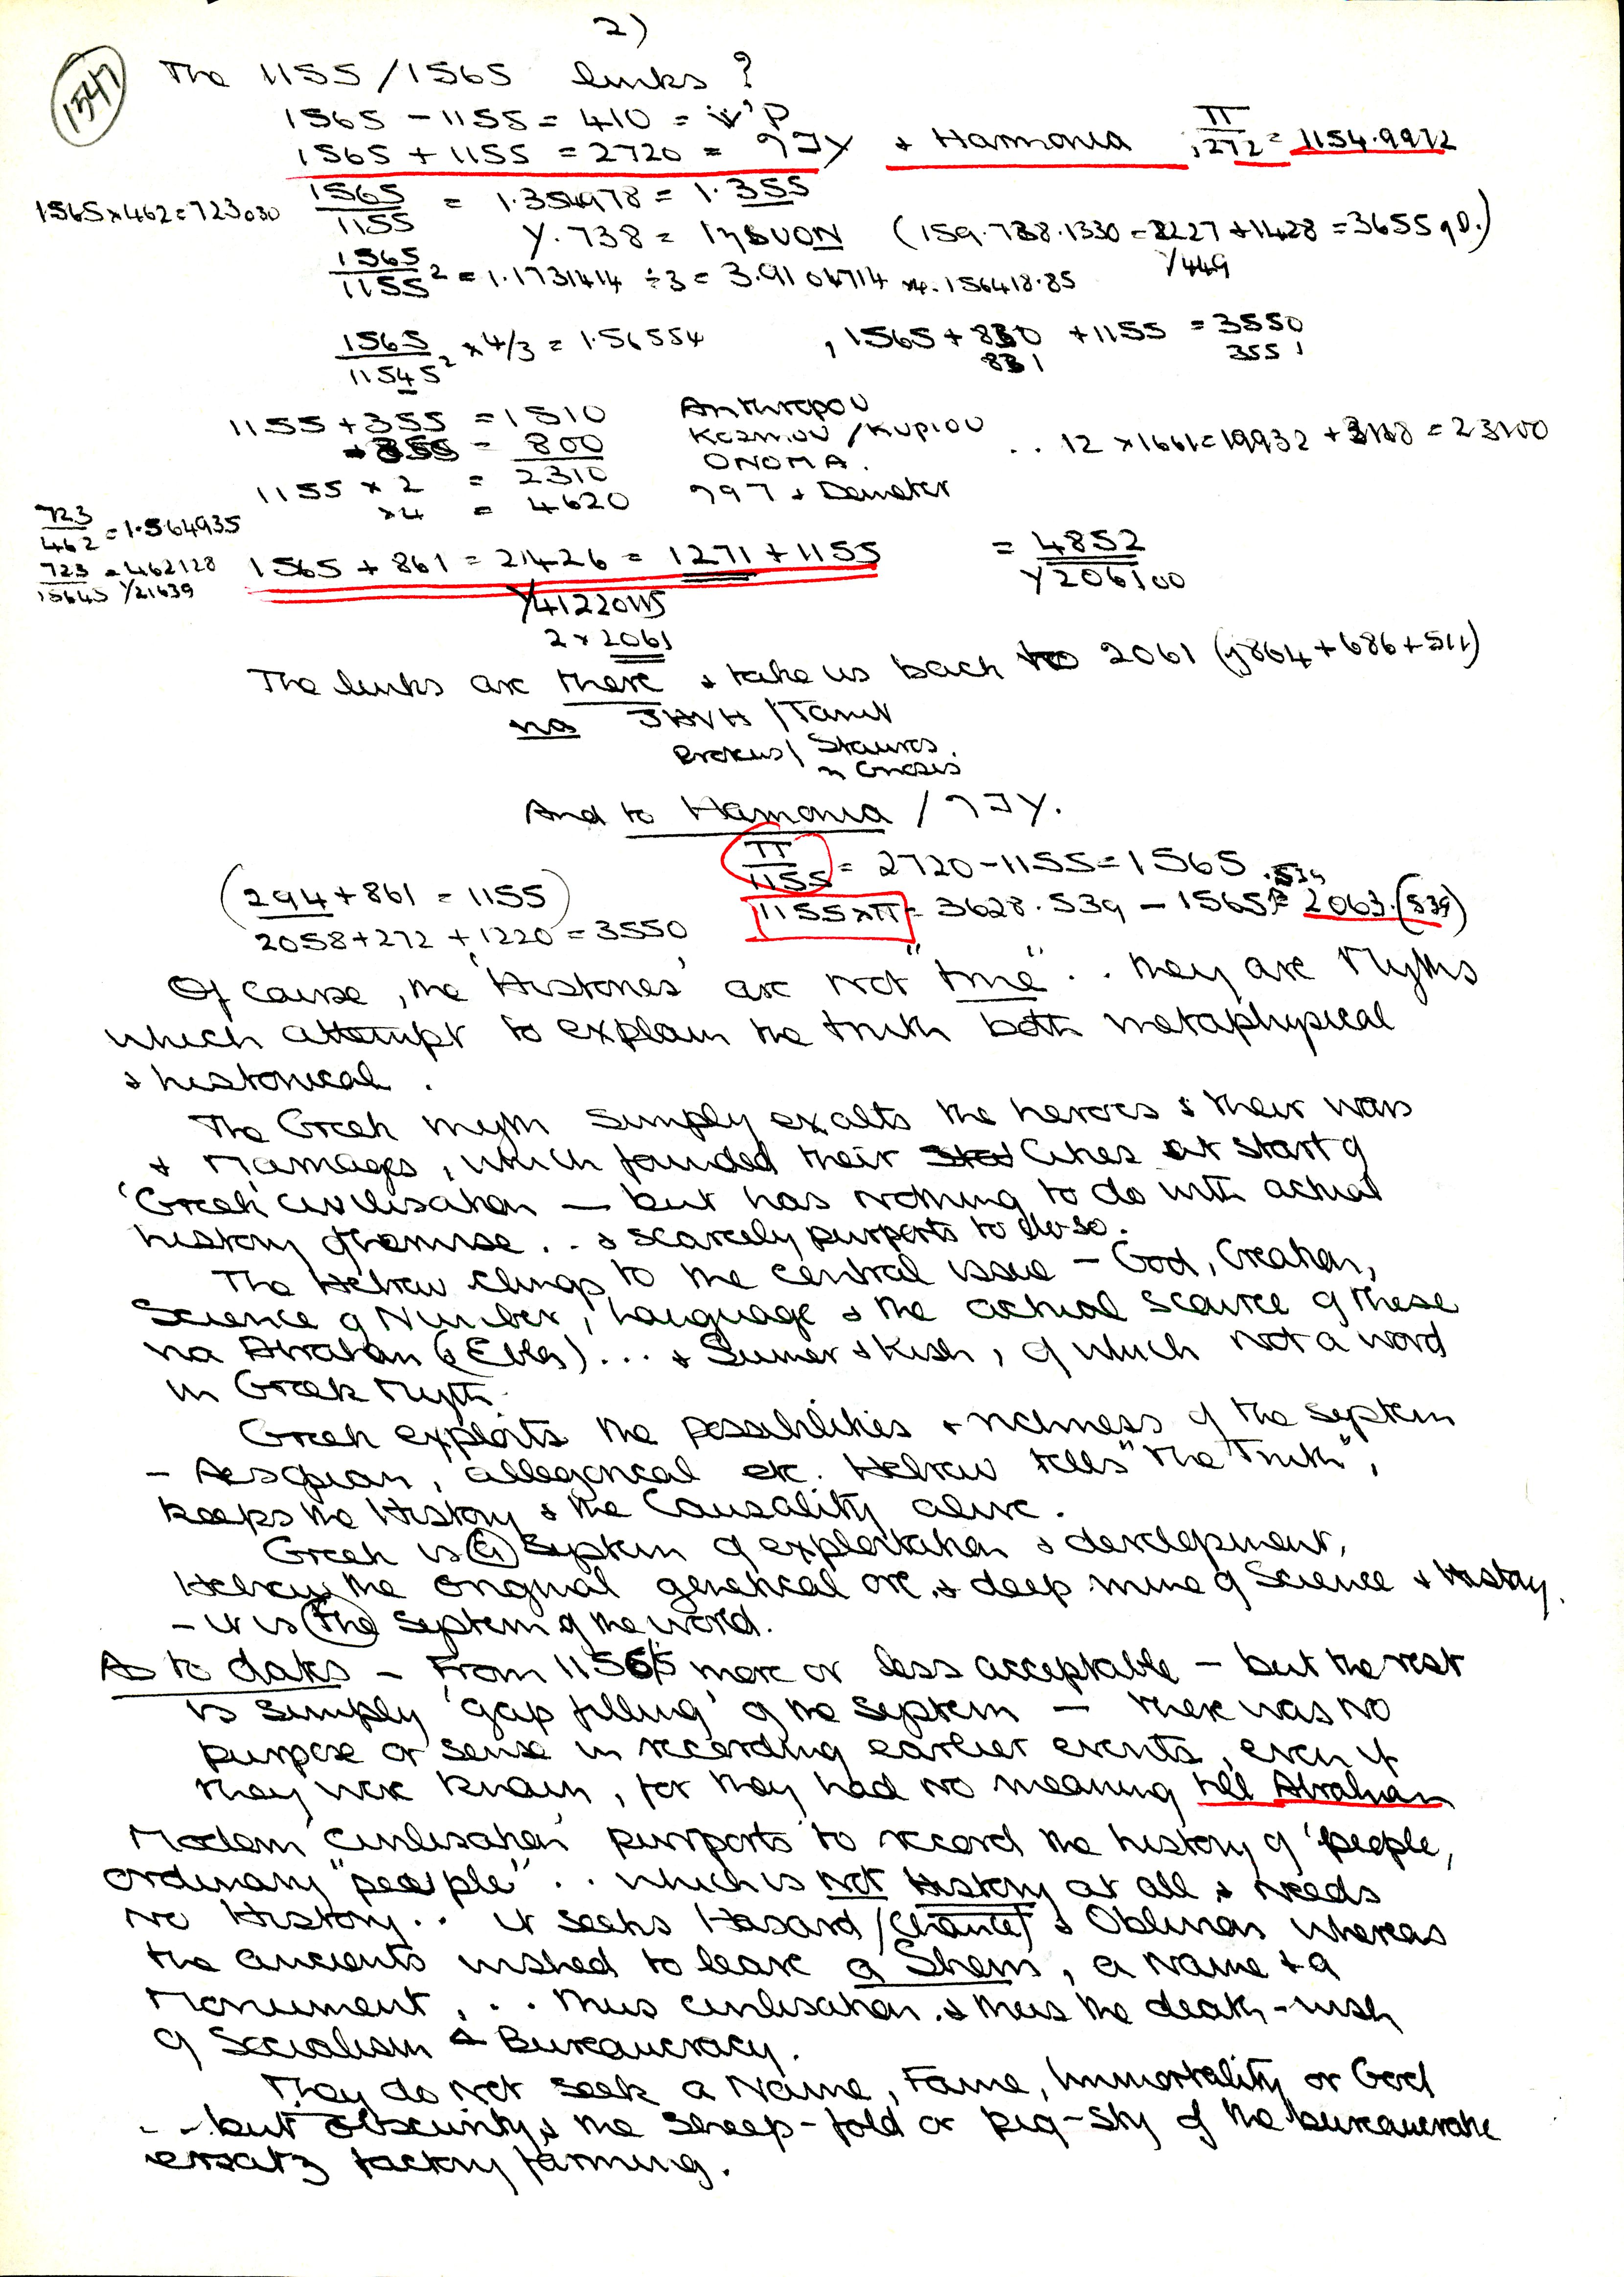 2)
1547
The 1155/1565 links?
1565 - 1155 = 410 =
1565 + 1155 = 2720 = & Harmonia, π/.272 = 1154.9972
1565x462=723030
1565/1155 = 1.354978 = 1.355
γ.738 = (159.738.1330 = 2227 + 1428 = 3655 qD.)
γ449
1565/1155² = 1.1731414 ÷3 = 3.9104714 x4. 156418.85
1565/11545² x 4/3 = 1.56554 , 1565 + 830 + 1155 = 3550
831 3551
1155 + 355 = 1510 Anthropou
= 800 Kosmou/Kupiou .. 12 x 1661 = 19932 + 3168 = 23100
ONOMA.
1155 x 2 = 2310
x4 = 4620 & Demeter
723/462 = 1.564935
723/15645 = 462128
γ21639
1565 + 861 = 2426 = 1271 + 1155 = 4852
γ206100
γ4122045
2 x 2061
The links are there & take us back to 2061 (γ864+686+511)
via JHVH / Tanit
Stauros
n Gnosis
And to Harmonia /
π/1155 = 2720 - 1155 = 1565
.539
(294 + 861 = 1155) 1155xπ = 3628.539 - 1565 = 2063.(539)
2058 + 272 + 1220 = 3550
Of cause, the 'Histories' are not "true".. they are Myths
which attempt to explain the truth both metaphysical
& historical.
The Greek myth simply exalts the heroes & their wars
& Marriages, which founded their Cities at start of
'Greek' civilisation — but has nothing to do with actual
history otherwise.. & scarcely purports to do so.
The Hebrew clings to the central issue — God, Creation,
Science of Number, Language & the actual source of these
via Abraham (& Ebla)... & Sumer & Kish, of which not a word
in Greek Myth.
Greek exploits the possibilities & richness of the system
- Aesopian, allegorical etc. Hebrew tells "The Truth",
keeps the History & the Causality alive.
Greek is (a) System of exploitation & development,
Hebrew the original genetical one, & deep mine of Science & History.
- it is (the) system of the world.
As to dates - From 1156/5 more or less acceptable - but the rest
is simply 'gap filling' of the system — there was no
purpose or sense in recording earlier events, even if
they were known, for they had no meaning till Abraham
Modern 'civilisation' purports to record the history of 'people,
ordinary "people".. which is not History at all & needs
no History.. it seeks Hasard/(Chance) & Oblivion whereas
the ancients wished to leave a Shem, a Name & a
Monument, .. thus civilisation. & thus the death-wish
of Socialism & Bureaucracy.
They do not seek a Name, Fame, Immortality or God
.. but obscurity, & the sheep-fold or pig-sty of the bureaucratic
ersatz factory farming.